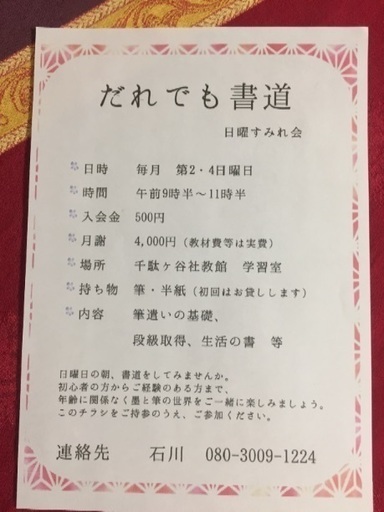 だれでも書道
日曜すみれ会
日時 毎月 第2・4日曜日
時間 午前9時半～11時半
入会金 500円
月謝 4,000円（教材費等は実費）
場所 千駄ヶ谷社教館 学習室
持ち物 筆・半紙（初回はお貸しします）
内容 筆遣いの基礎、
段級取得、生活の書 等
日曜日の朝、書道をしてみませんか。
初心者の方からご経験のある方まで、
年齢に関係なく墨と筆の世界をご一緒に楽しみましょう。
このチラシをご持参のうえ、ご参加ください。
連絡先 石川 080-3009-1224